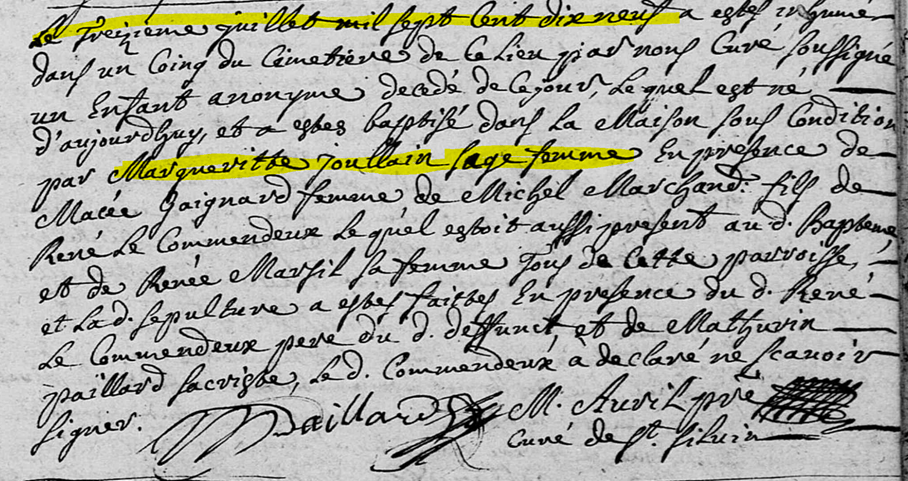 Le Treizieme juillet mil sept cent dix neuf a estes inhumé
dans un Coing du Cimetiere de ce lieu par nous Curé soussigné
un Enfant anonyme decedé de ce jour, Le quel est né
d'aujourdhuy, et a estes baptisé dans La Maison sous Condition
par Margueritte Joullain sage femme En presence de
Macée Gaignard femme de Michel Marchand. fils de
René Le Commendeux Le quel estoit aussi present au d. Bapteme
et de Renée Marsil sa femme Tous de Cette parroisse,
et La d. sepulture a estes faittes En presence du d. René
Le Commendeux pere du d. deffunct et de Mathurin
paillard sacriste, Le d. Commendeux à declaré ne scavoir
signer. Paillard M. Avril pre
Curé de St. Silvin